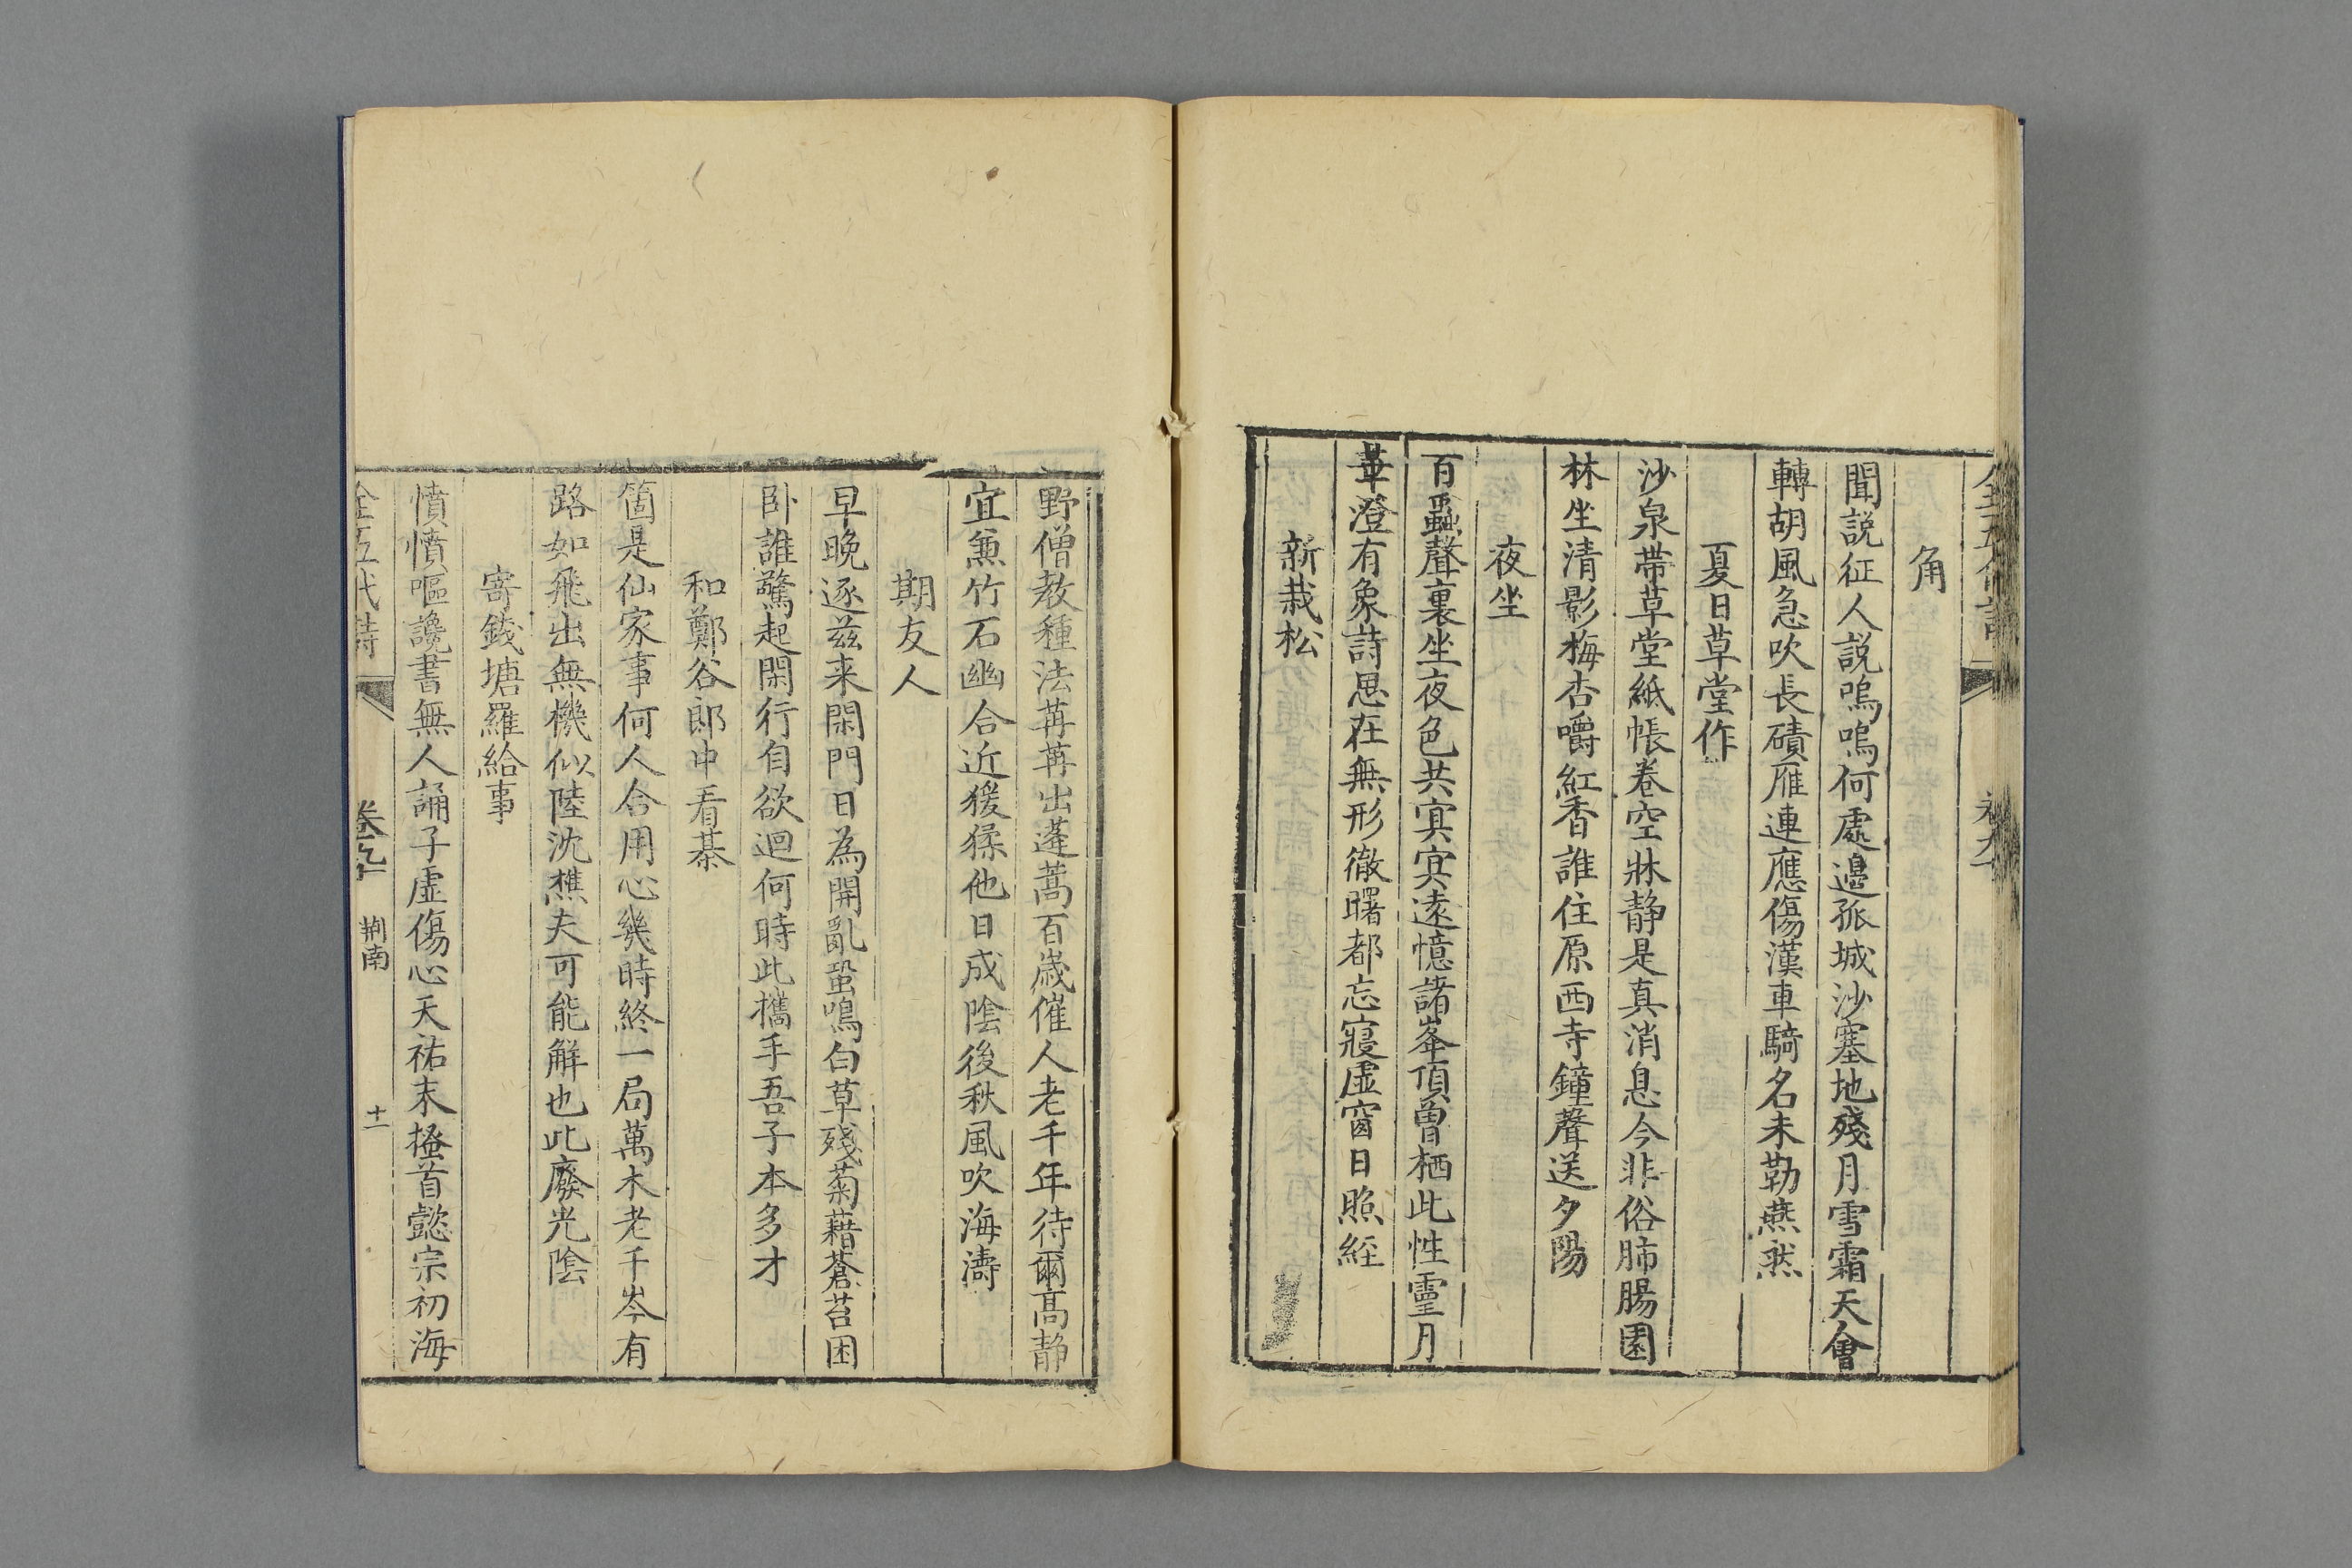 角
聞説征人説嗚嗚何處邉孤城沙塞地殘月雪霜天會
轉胡風急吹長磧雁連應傷漢車騎名未勒燕然
夏日草堂作
沙泉帶草堂紙帳卷空牀静是真消息今非俗肺腸園
林坐清影梅杏嚼紅香誰住原西寺鐘聲送夕陽
夜坐
百蟲聲裏坐夜色共㝠㝠遠憶諸峯頂曽栖此性靈月
華澄有象詩思在無形徹曙都忘寢虛窗日照經
新栽松
野僧教種法苒苒出蓬蒿百歳催人老千年待爾高静
宜兼竹石幽合近猨猱他日成陰後秋風吹海濤
期友人
早晚逐兹来閑門日為開亂蛩鳴白草殘菊藉蒼苔困
卧誰驚起閑行自欲迴何時此攜手吾子本多才
和鄭谷郎中看棊
箇是仙家事何人合用心幾時終一局萬木老千岑有
路如飛出無機似陸沈樵夫可能解也此廢光陰
寄錢塘羅給事
憤憤嘔讒書無人誦子虛傷心天祐末搔首懿宗初海
全五代詩 卷九 荆南 十一